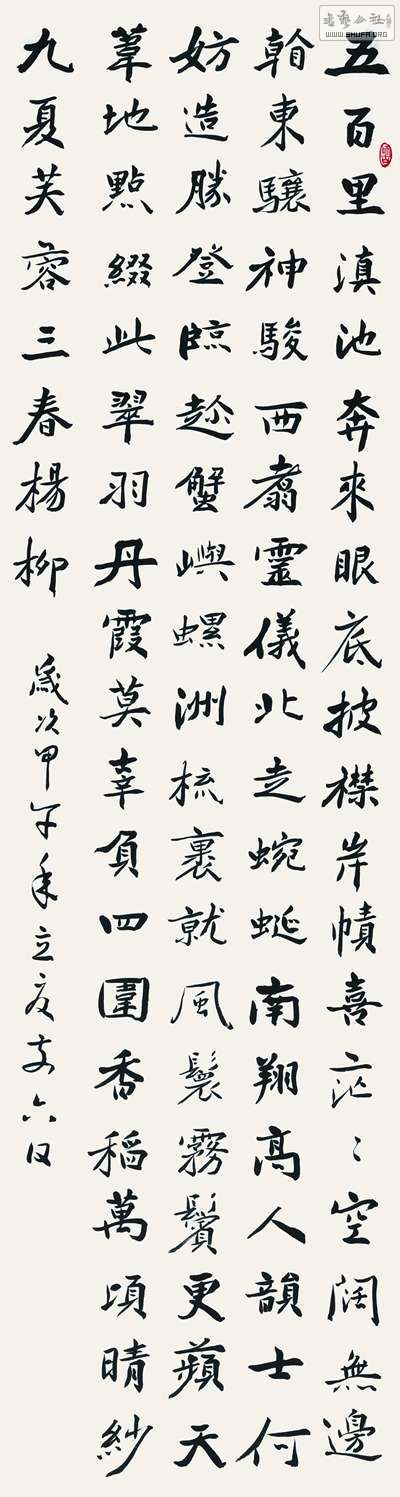 書藝公社
WWW.SHUFA.ORG
五百里滇池奔來眼底披襟岸幘喜茫〻空闊無邊
東驤神駿西翥靈儀北走蜿蜒南翔高人韻士何
妨造勝登臨趁蟹嶼螺洲梳裹就風鬟霧鬢更蘋天
葦地點綴此翠羽丹霞莫辜負四圍香稻萬頃晴紗
九夏芙蓉三春楊柳
歲次甲午年立夏六日